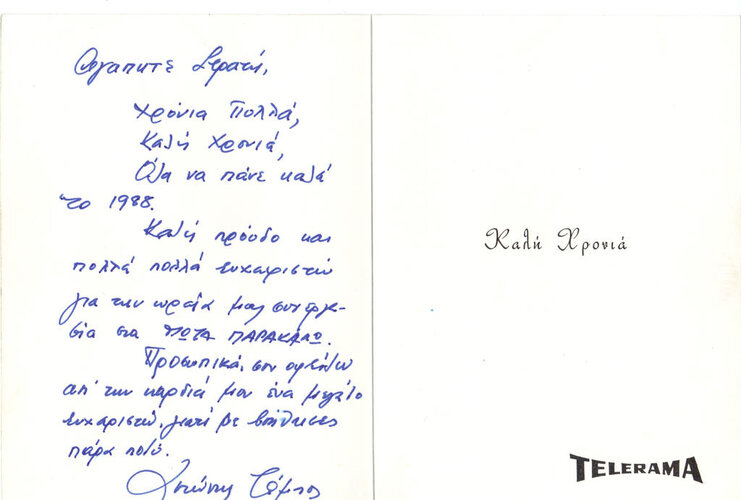 Αγαπητέ Στρατή,
Χρόνια Πολλά,
Καλή χρονιά,
Όλα να πάνε καλά
το 1988.
Καλή πρόοδο και
πολλά πολλά ευχαριστώ
για την ωραία μας συνεργα-
σία στα ΦΩΤΑ ΠΑΡΑΚΑΛΩ.
Προσωπικά, σου οφείλω
απ' την καρδιά μου ένα μεγάλο
ευχαριστώ, γιατί με βοήθησες
πάρα πολύ.
Καλή Χρονιά
TELERAMA